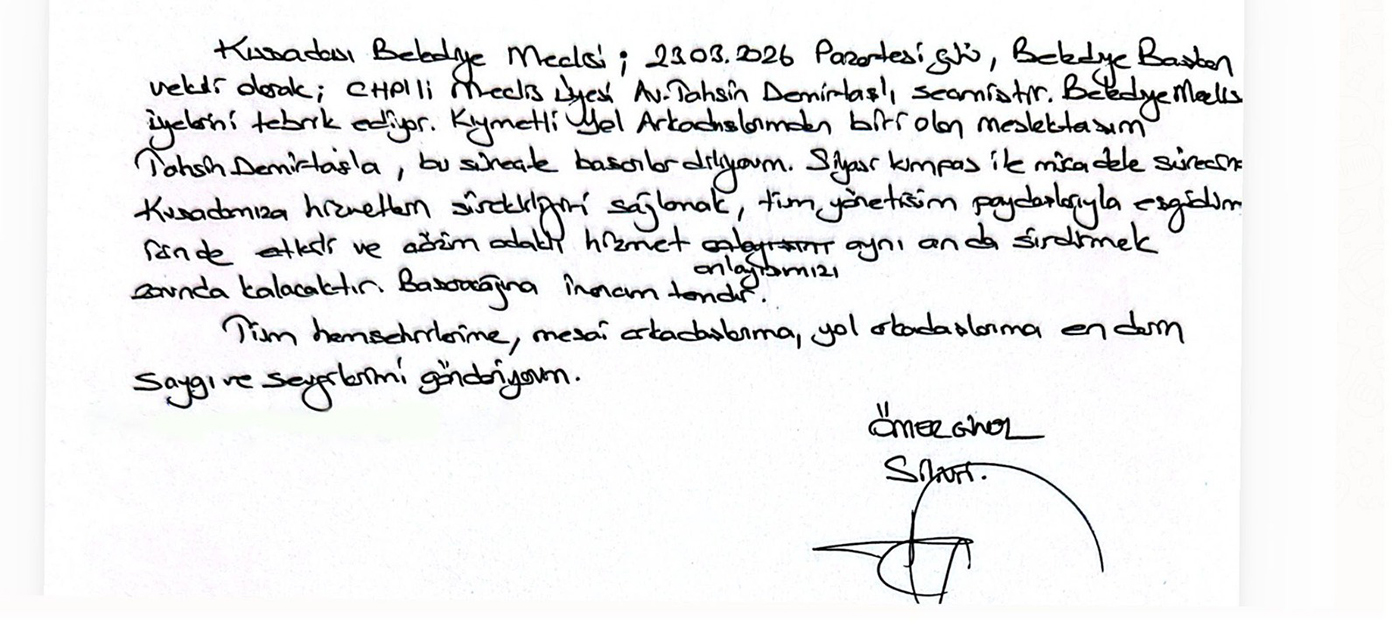 Kuşadası Belediye Meclisi; 23.03.2026 Pazartesi günü, Belediye Başkan
vekili olarak; CHP'li Meclis Üyesi Av. Tahsin Demirtaş'ı seçmiştir. Belediye Meclis
üyelerini tebrik ediyor. Kıymetli Yol Arkadaşlarımdan biri olan meslektaşım
Tahsin Demirtaş'a, bu süreçte başarılar diliyorum. Siyasi kumpas ile mücadele sürecin
Kuşadamıza hizmetlerin sürekliliğini sağlamak, tüm yönetişim paydaşlarıyla eşgüdüm
içinde etkili ve çözüm odaklı hizmet aynı anda sürdürmek
anlayışımızı
zorunda kalacaktır. Başaracağına inancım tamdır.
Tüm hemşehrilerime, mesai arkadaşlarıma, yol arkadaşlarıma en derin
saygı ve sevgilerimi gönderiyorum.
ÖMER GÜNEL
Silivri.